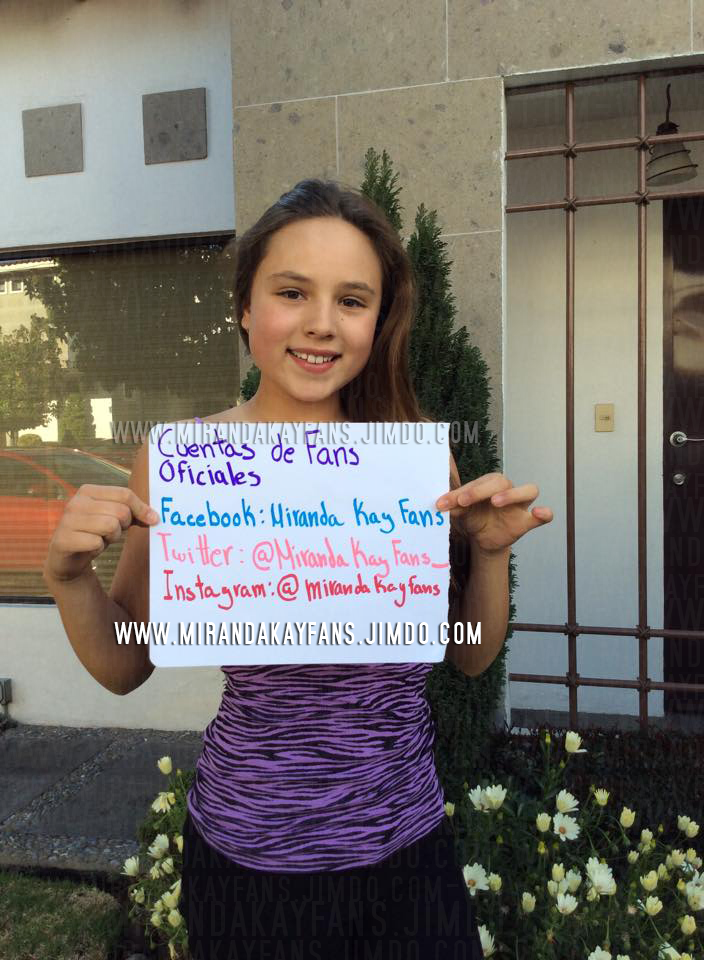 WWW.MIRANDAKAYFANS.JIMDO.COM
Cuentas de Fans
Oficiales
Facebook: Miranda Kay Fans
Twitter: @MirandaKayFans_
Instagram: @mirandakayfans
WWW.MIRANDAKAYFANS.JIMDO.COM